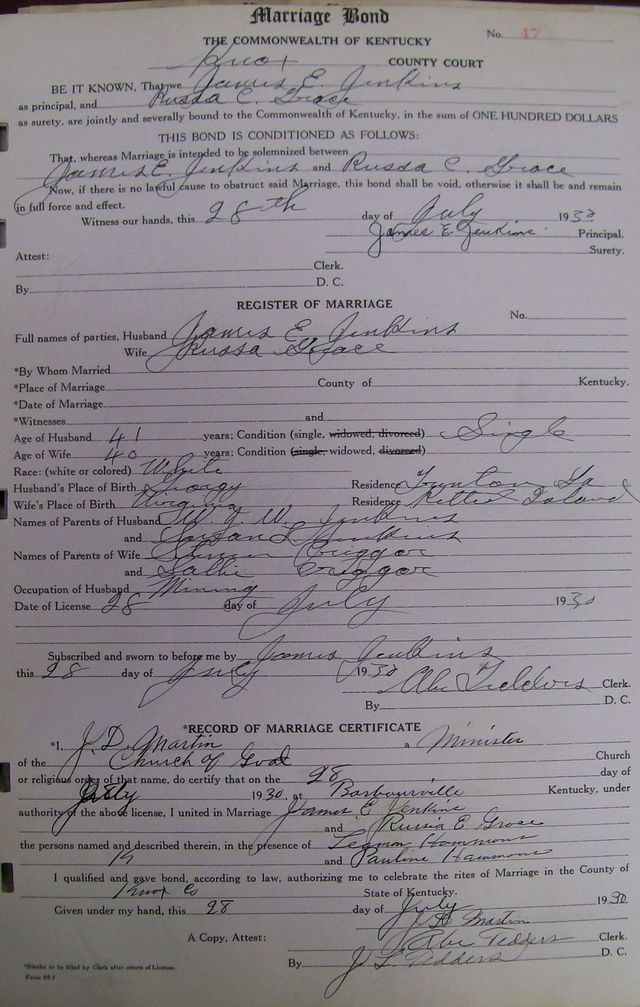 Marriage Bond
No. 17
THE COMMONWEALTH OF KENTUCKY
Knox COUNTY COURT
BE IT KNOWN, That we James E. Jenkins
as principal, and Russa C. Grace
as surety, are jointly and severally bound to the Commonwealth of Kentucky, in the sum of ONE HUNDRED DOLLARS
THIS BOND IS CONDITIONED AS FOLLOWS:
That, whereas Marriage is intended to be solemnized between
James E. Jenkins and Russa C. Grace
Now, if there is no lawful cause to obstruct said Marriage, this bond shall be void, otherwise it shall be and remain
in full force and effect.
Witness our hands, this 28th day of July 1930
James E Jenkins Principal.
Surety.
Attest:
Clerk.
By D. C.
REGISTER OF MARRIAGE
No.
Full names of parties, Husband James E Jenkins
Wife Russa Grace
*By Whom Married
*Place of Marriage County of Kentucky.
*Date of Marriage
*Witnesses and
Age of Husband 41 years; Condition (single, widowed, divorced) Single
Age of Wife 40 years; Condition (single, widowed, divorced)
Race: (white or colored) White
Husband's Place of Birth Residence
Wife's Place of Birth Virginia Residence
Names of Parents of Husband Jenkins
and Jenkins
Names of Parents of Wife Criggar
and Sallie Criggar
Occupation of Husband Mining
Date of License 28 day of July 1930
Subscribed and sworn to before me by James Jenkins
this 28 day of July 1930
Abe Tedders Clerk.
By D. C.
*RECORD OF MARRIAGE CERTIFICATE
*I, J. D. Martin a Minister
of the Church of God Church
or religious order of that name, do certify that on the 28 day of
July 1930, at Barbourville Kentucky, under
authority of the above license, I united in Marriage James E Jenkins
and Russia E Grace
the persons named and described therein, in the presence of Hammons
and Pauline Hammons
I qualified and gave bond, according to law, authorizing me to celebrate the rites of Marriage in the County of
Knox Co State of Kentucky.
Given under my hand, this 28 day of July 1930
J D Martin
A Copy, Attest: Abe Tedders Clerk.
By J L Tedders D. C.
*Blanks to be filled by Clerk after return of License.